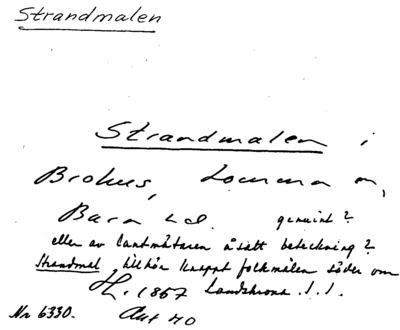 Strandmalen
Strandmalen i
Brohus, Lomma sn,
Bara hd. genuint?
eller av lantmätaren åsatt beteckning?
Strandmal, tillhör knappt folkmålen söder om
H. 1857 Landskrona . ! .
Nr 6330. Akt 40